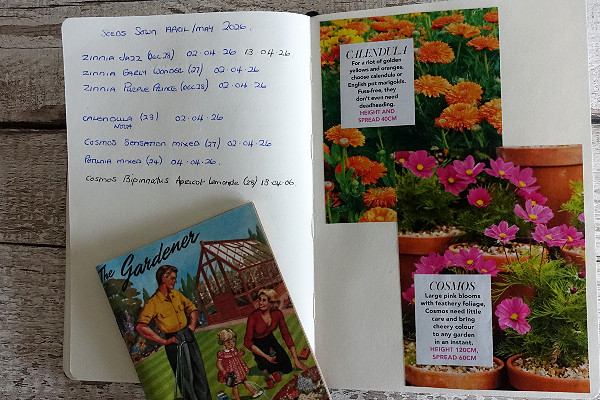 Seeds Sown April/May 2026.
Zinnia Jazz (Dec 28) 02-04-26 13-04-26
Zinnia Early Wonder (27) 02-04-26
Zinnia Purple Prince (Dec 28) 02-04-26
Calendula (23) 02-04-26
Nova
Cosmos Sensation Mixed (27) 02-04-26
Petunia Mixed (24) 04-04-26.
Cosmos Bipinnatus Apricot Lemonade (28) 13-04-06.
The Gardener
CALENDULA
For a riot of golden
yellows and oranges,
choose calendula or
English pot marigolds.
Fuss-free, they
don't even need
deadheading.
HEIGHT AND
SPREAD 40CM
COSMOS
Large pink blooms
with feathery foliage,
Cosmos need little
care and bring
cheery colour
to any garden
in an instant.
HEIGHT 120CM,
SPREAD 60CM